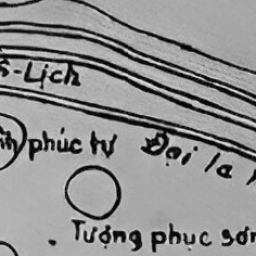 -Lịch
phúc tự
Đại la
Tượng phục sơn